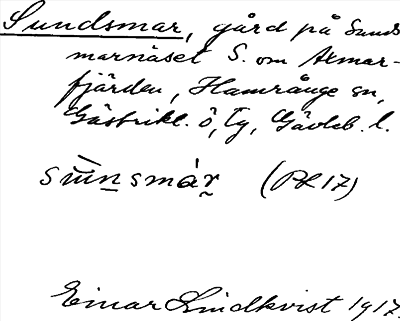 Sundsmar, gård på Sunds
marnäset S. om Axmar-
fjärden, Hamrånge sn,
Gästrikl. ö, tg, Gävleb. l.
(PR17)
Einar Lindkvist 1917.